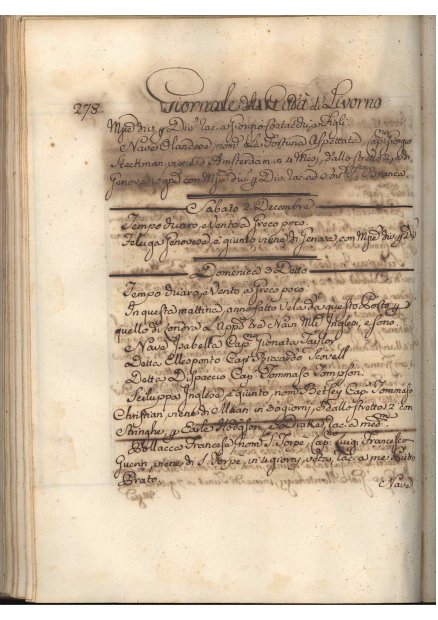 278. Giornale della Città di Livorno
Mrẽ div. p Div. rac. a Giorgio
Nave Olandese nom. la Fortuna Aspettata, Cap. Giorgio
Stackman viene d'Amsterdam in 4 Mesi, dallo stretto
Genova, con Mrẽ div. p Div. rac. ad
Sabato 2. Decembre
Tempo chiaro, e vento a Greco poco.
Feluga Genovese, è giunto, viene di Genova, con Mrẽ div. p Di
Domenica 3 Detto
Tempo chiaro, e Vento a Greco poco.
In questa mattina, anno fatto Vela da questo Porto p
quello di Londra L'App. tre Navi Mlı Inglesi, e sono
Nave Isabella Cap. Gionata Taylor
Detta Elleponto Cap. Riccardo Scovell
Detta Dispaccio Cap. Tommaso Tompson.
Sciluppa Inglese, è giunto, nom. Betsey Cap. Tommaso
Christian, viene di in 30 giorni, e dallo stretto 12 con
Stringhe, p Earle Hodgson, e Drake rac. a med.
Pollacca Francese, nom. S. Torpe, Cap. Luigi Francesco
Guerin, viene di S. Torpe, in 4 giorni, vota, rac. a me Pietro
Prato.
Nave